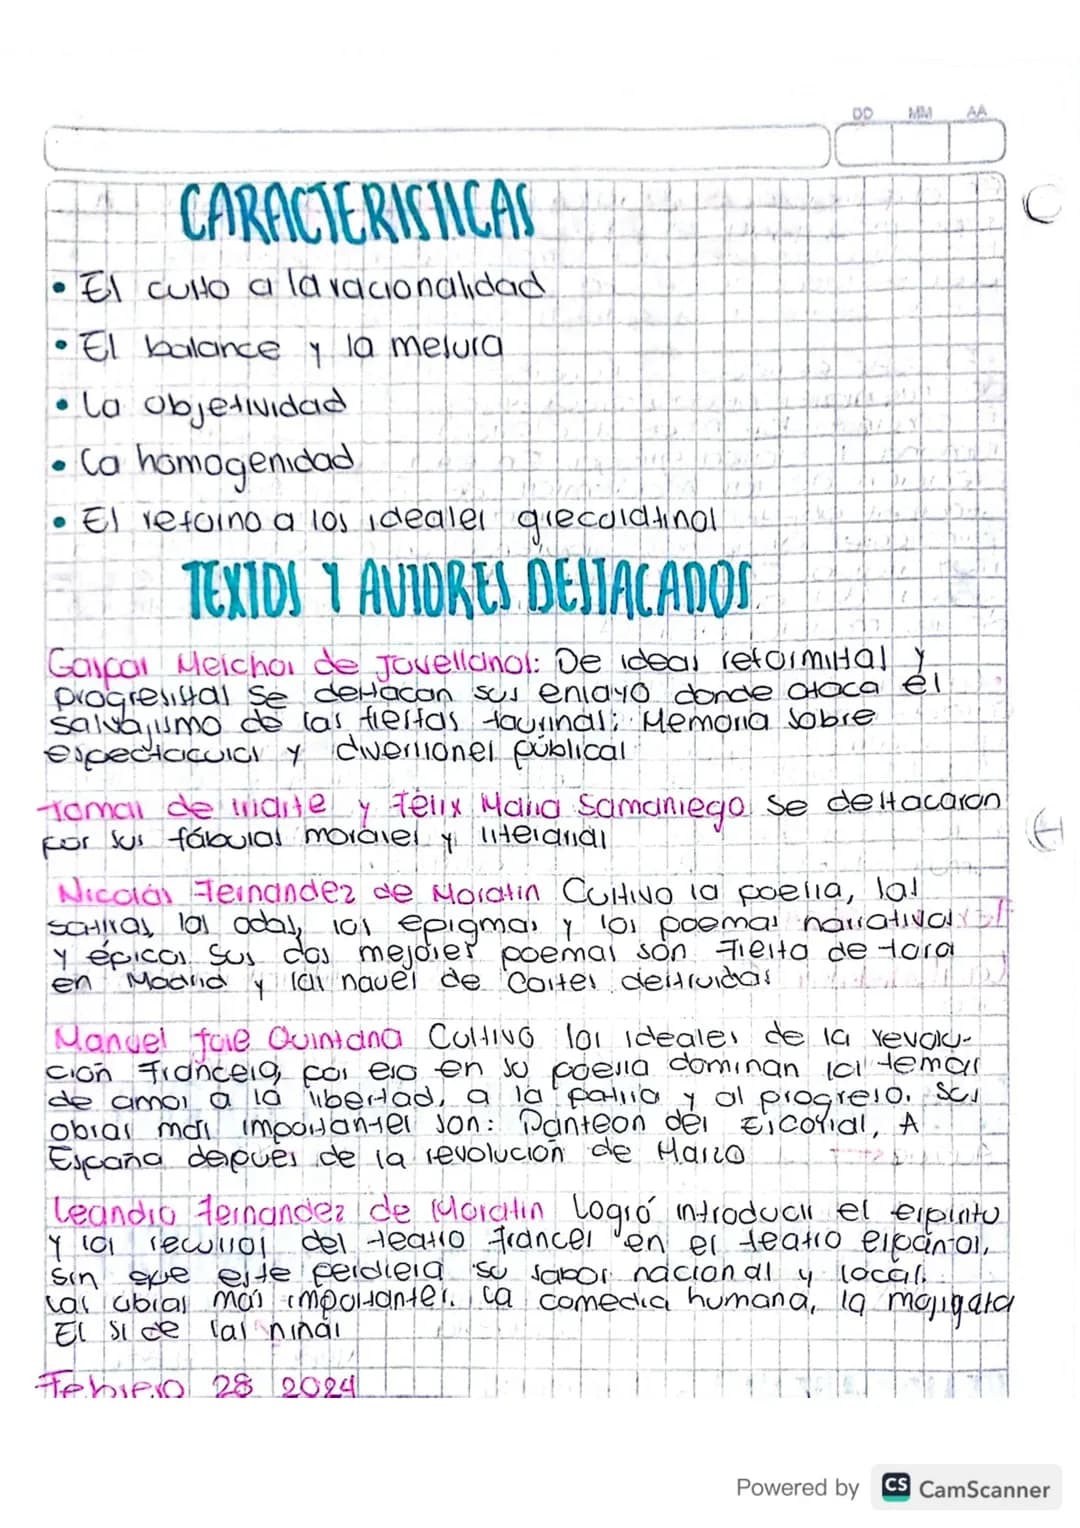 DD MM AA
CARACTERISTICAS
• El culto a la racionalidad
• El balance y la mesura
• La objetividad
• La homogenidad
• El retorno a los ideales grecolatinos
TEXTOS Y AUTORES DESTACADOS
Gaspar Melchor de Jovellanos: De ideas reformistas y
progresistas se destacan sus enlayo donde ataca el
salvajismo de las fiestas taurinas; Memoria sobre
espectaculos y diversiones públicas
Tomas de iriarte y Félix Maria Samaniego se destacaron
por sus fábulas morales y literarias
Nicolás Fernandez de Moratin Cultivo la poesia, las
satiras, las odas, los epigmas y los poemas narrativos
y épicos. Sus dos mejores poemas son Fiesta de toros
en Madrid y las naves de Cortes destruidas
Manuel Jose Quintana Cultivó los ideales de la revolu-
ción Francesa, por eso en su poesia dominan los temas
de amor a la libertad, a la patria y al progreso. Sus
obras más importantes son: Panteon del Escorial, A
España después de la revolución de Marzo
Leandro Fernandez de Moratin Logró introducir el espiritu
y los recursos del teatro Frances en el teatro español,
sin que este perdiera su sabor nacional y local.
Las obras más importantes. La comedia humana, la mojigata
El si de las niñas
Febrero 28 2024
Powered by CS CamScanner